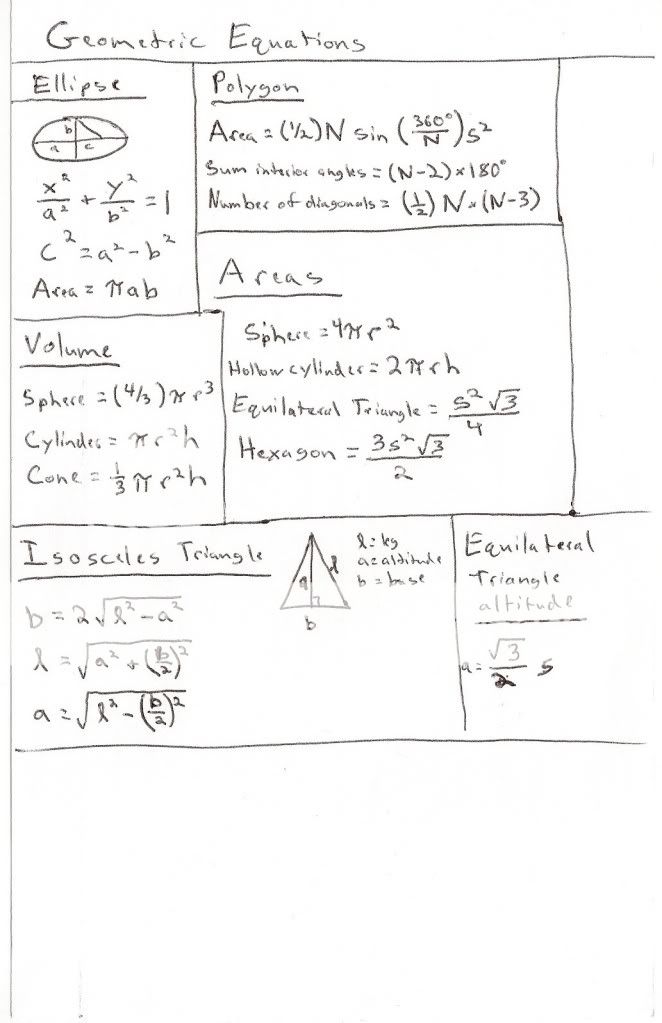 Geometric Equations
Ellipse
b
a c
x²/a² + y²/b² = 1
c² = a² - b²
Area = πab
Polygon
Area = (1/2) N sin (360°/N) s²
Sum interior angles = (N-2) × 180°
Number of diagonals = (1/2) N × (N-3)
Areas
Sphere = 4πr²
Hollow cylinder = 2πrh
Equilateral Triangle = s²√3/4
Hexagon = 3s²√3/2
Volume
Sphere = (4/3) πr³
Cylinder = πr²h
Cone = 1/3 πr²h
Isosceles Triangle
b = 2√(l² - a²)
l = √(a² + (b/2)²)
a = √(l² - (b/2)²)
a l
b
l = leg
a = altitude
b = base
Equilateral
Triangle
altitude
a = √3/2 s